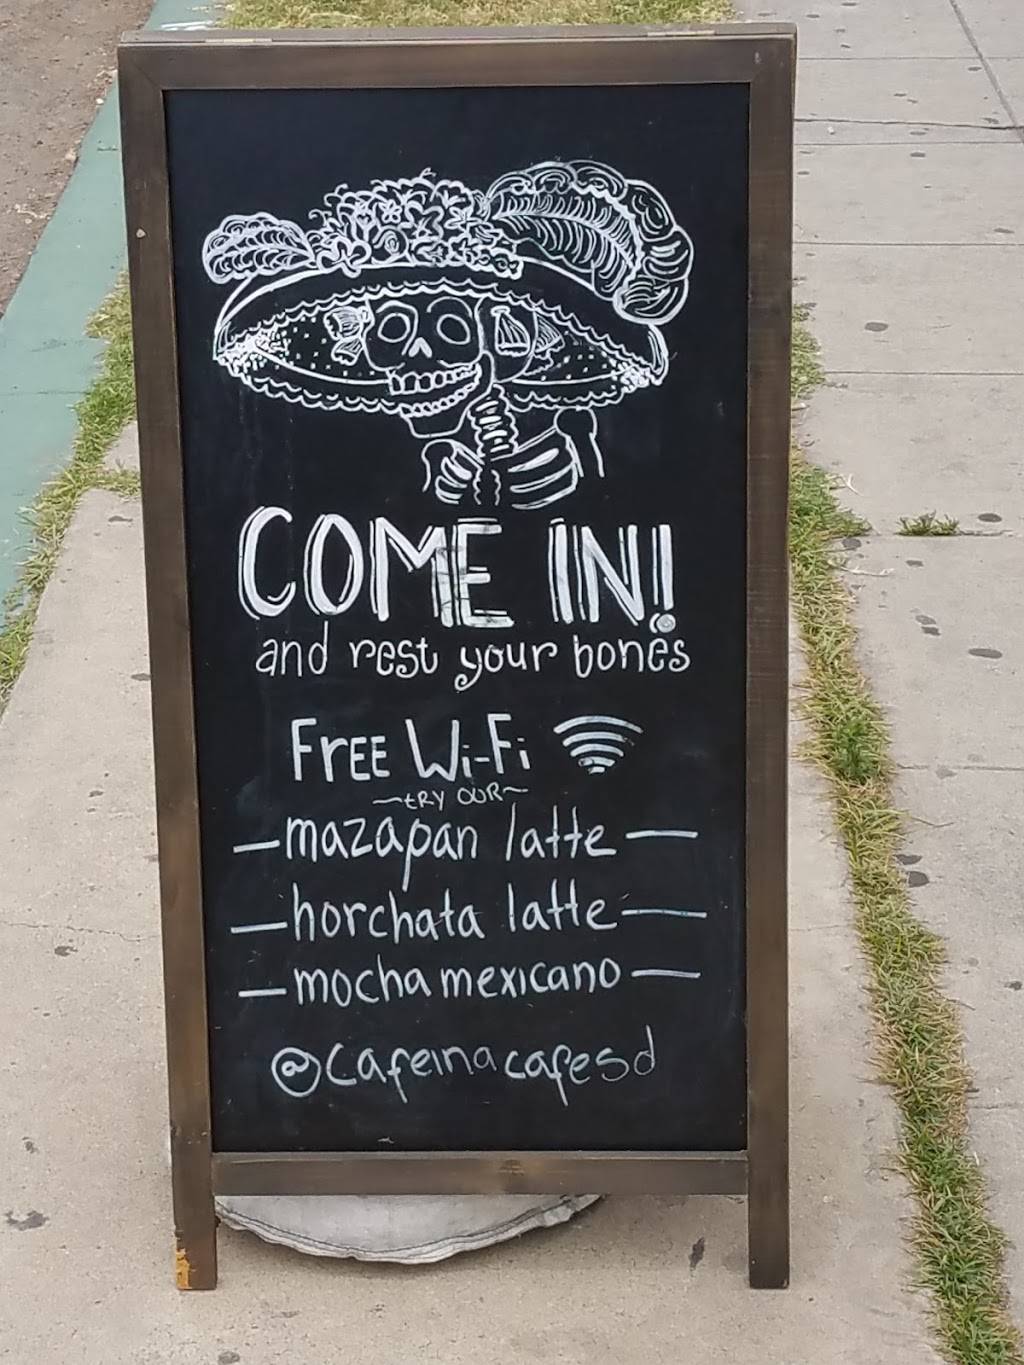 COME IN!
and rest your bones
FREE Wi-Fi
~tRY OUR~
—mazapan latte—
—horchata latte—
—mocha mexicano—
@cafeinacafesd